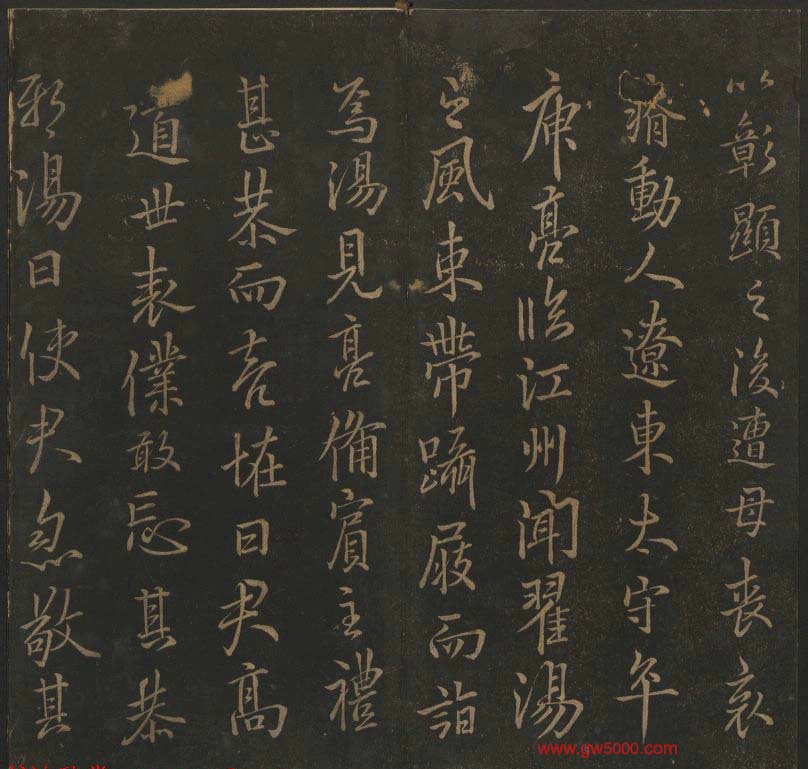 以彰顯之後遭母喪哀
瘠動人遼東太守卒
庾亮臨江州聞翟湯
之風束帶躡屐而詣
焉湯見亮備賓主禮
甚恭而恠曰君高
道世表僕敢忘其恭
邪湯曰使君忽敬其
www.gw5000.com